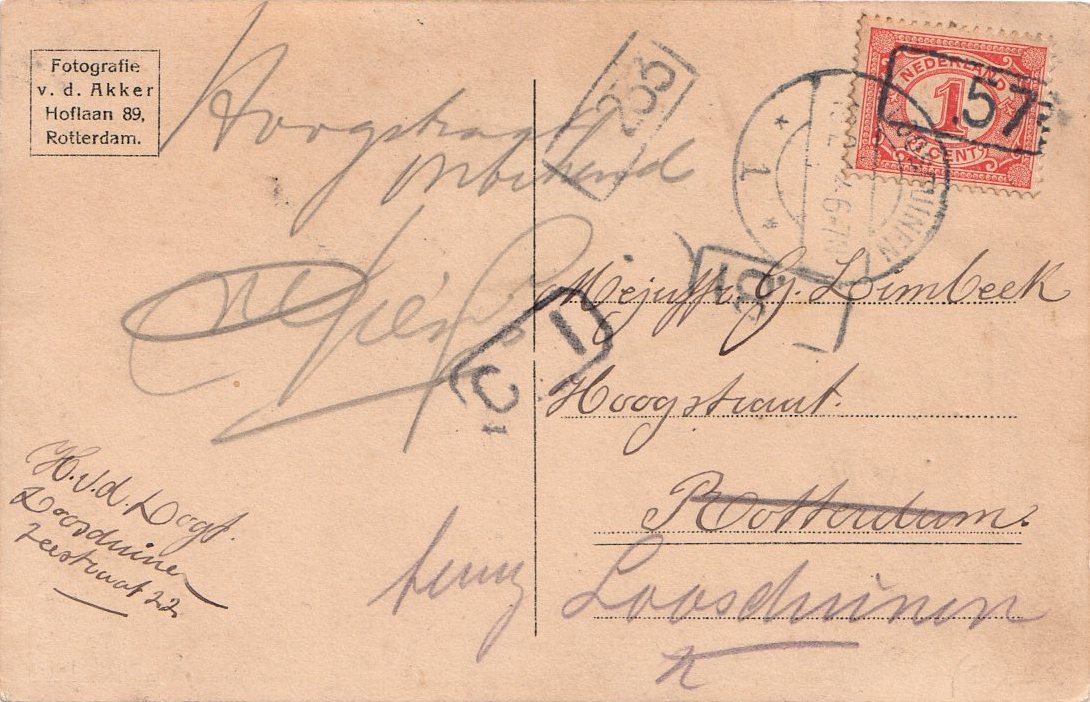 Fotografie
v. d. Akker
Hoflaan 89,
Rotterdam.
Hoogstraat
onbekend
253
NEDERLAND
1
CENT
.57
1
Mejuffr. G. Limbeek
Hoogstraat.
Rotterdam.
terug Loosduinen
H. v. d. Hoogt.
Loosduinen
Zeestraat 22